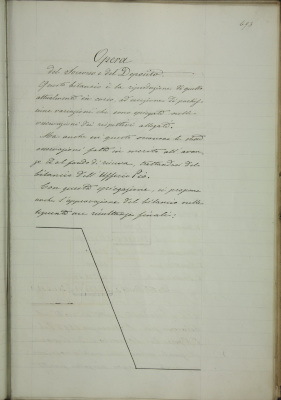 Opera
del Soccorso e del Deposito.
Questo bilancio è la riproduzione di quello
attualmente in corso, ad eccezione di
variazioni che sono spiegate nelle
osservazioni dei rispettivi allegati.
Ma anche in questo occorrono le
variazioni fatte in merito all'avan-
zo ed al fondo di riserva,
bilancio dell'Ufficio Pio.
Con questa spiegazione, si propone
anche l'approvazione del bilancio nelle
seguenti sue risultanze finali: